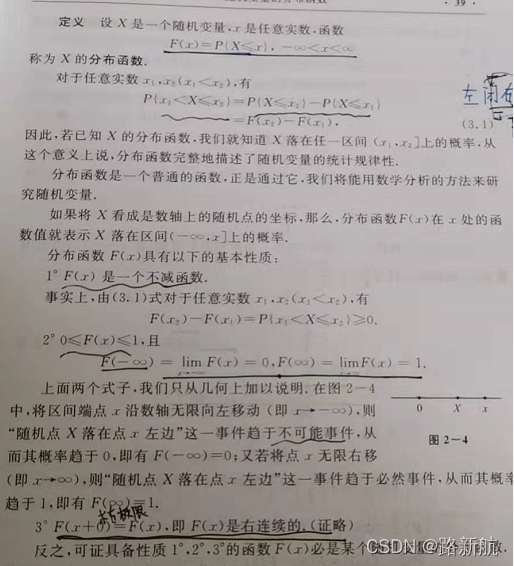 · 39 ·
定义 设 X 是一个随机变量,x 是任意实数,函数
F(x)=P{X≤x}, -∞<x<∞
称为 X 的分布函数.
对于任意实数 x₁,x₂(x₁<x₂),有
P{x₁<X≤x₂}=P{X≤x₂}-P{X≤x₁}
=F(x₂)-F(x₁),
(3.1)
左闭
因此,若已知 X 的分布函数,我们就知道 X 落在任一区间 (x₁,x₂]上的概率,从
这个意义上说,分布函数完整地描述了随机变量的统计规律性.
分布函数是一个普通的函数,正是通过它,我们将能用数学分析的方法来研
究随机变量.
如果将 X 看成是数轴上的随机点的坐标,那么,分布函数F(x)在 x 处的函
数值就表示 X 落在区间(-∞,x]上的概率.
分布函数 F(x)具有以下的基本性质:
1° F(x) 是一个不减函数.
事实上,由(3.1)式对于任意实数 x₁,x₂(x₁<x₂),有
F(x₂)-F(x₁)=P{x₁<X≤x₂}≥0.
2° 0≤F(x)≤1,且
F(-∞)=lim F(x)=0,F(∞)=lim F(x)=1.
x→-∞ x→∞
上面两个式子,我们只从几何上加以说明.在图 2-4
中,将区间端点 x 沿数轴无限向左移动(即 x→-∞),则
“随机点 X 落在点 x 左边”这一事件趋于不可能事件,从
而其概率趋于 0,即有 F(-∞)=0;又若将点 x 无限右移
0 X x
图 2-4
(即 x→∞),则“随机点 X 落在点 x 左边”这一事件趋于必然事件,从而其概率
趋于1,即有 F(∞)=1.
极限
3° F(x+0)=F(x),即 F(x)是右连续的.(证略)
反之,可证具备性质 1°,2°,3°的函数 F(x)必是某个
CSDN @路新航